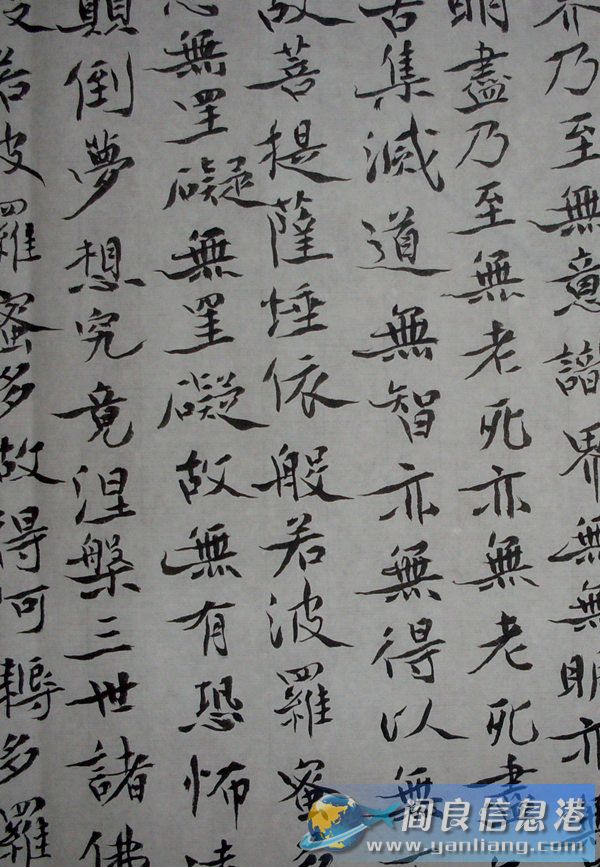 界乃至無意識界無無明亦無
明盡乃至無老死亦無老死盡
苦集滅道無智亦無得以無
故菩提薩埵依般若波羅蜜多
心無罣礙無罣礙故無有恐怖遠
顛倒夢想究竟涅槃三世諸佛
般若波羅蜜多故得阿耨多羅
阎良信息港
www.yanliang.com